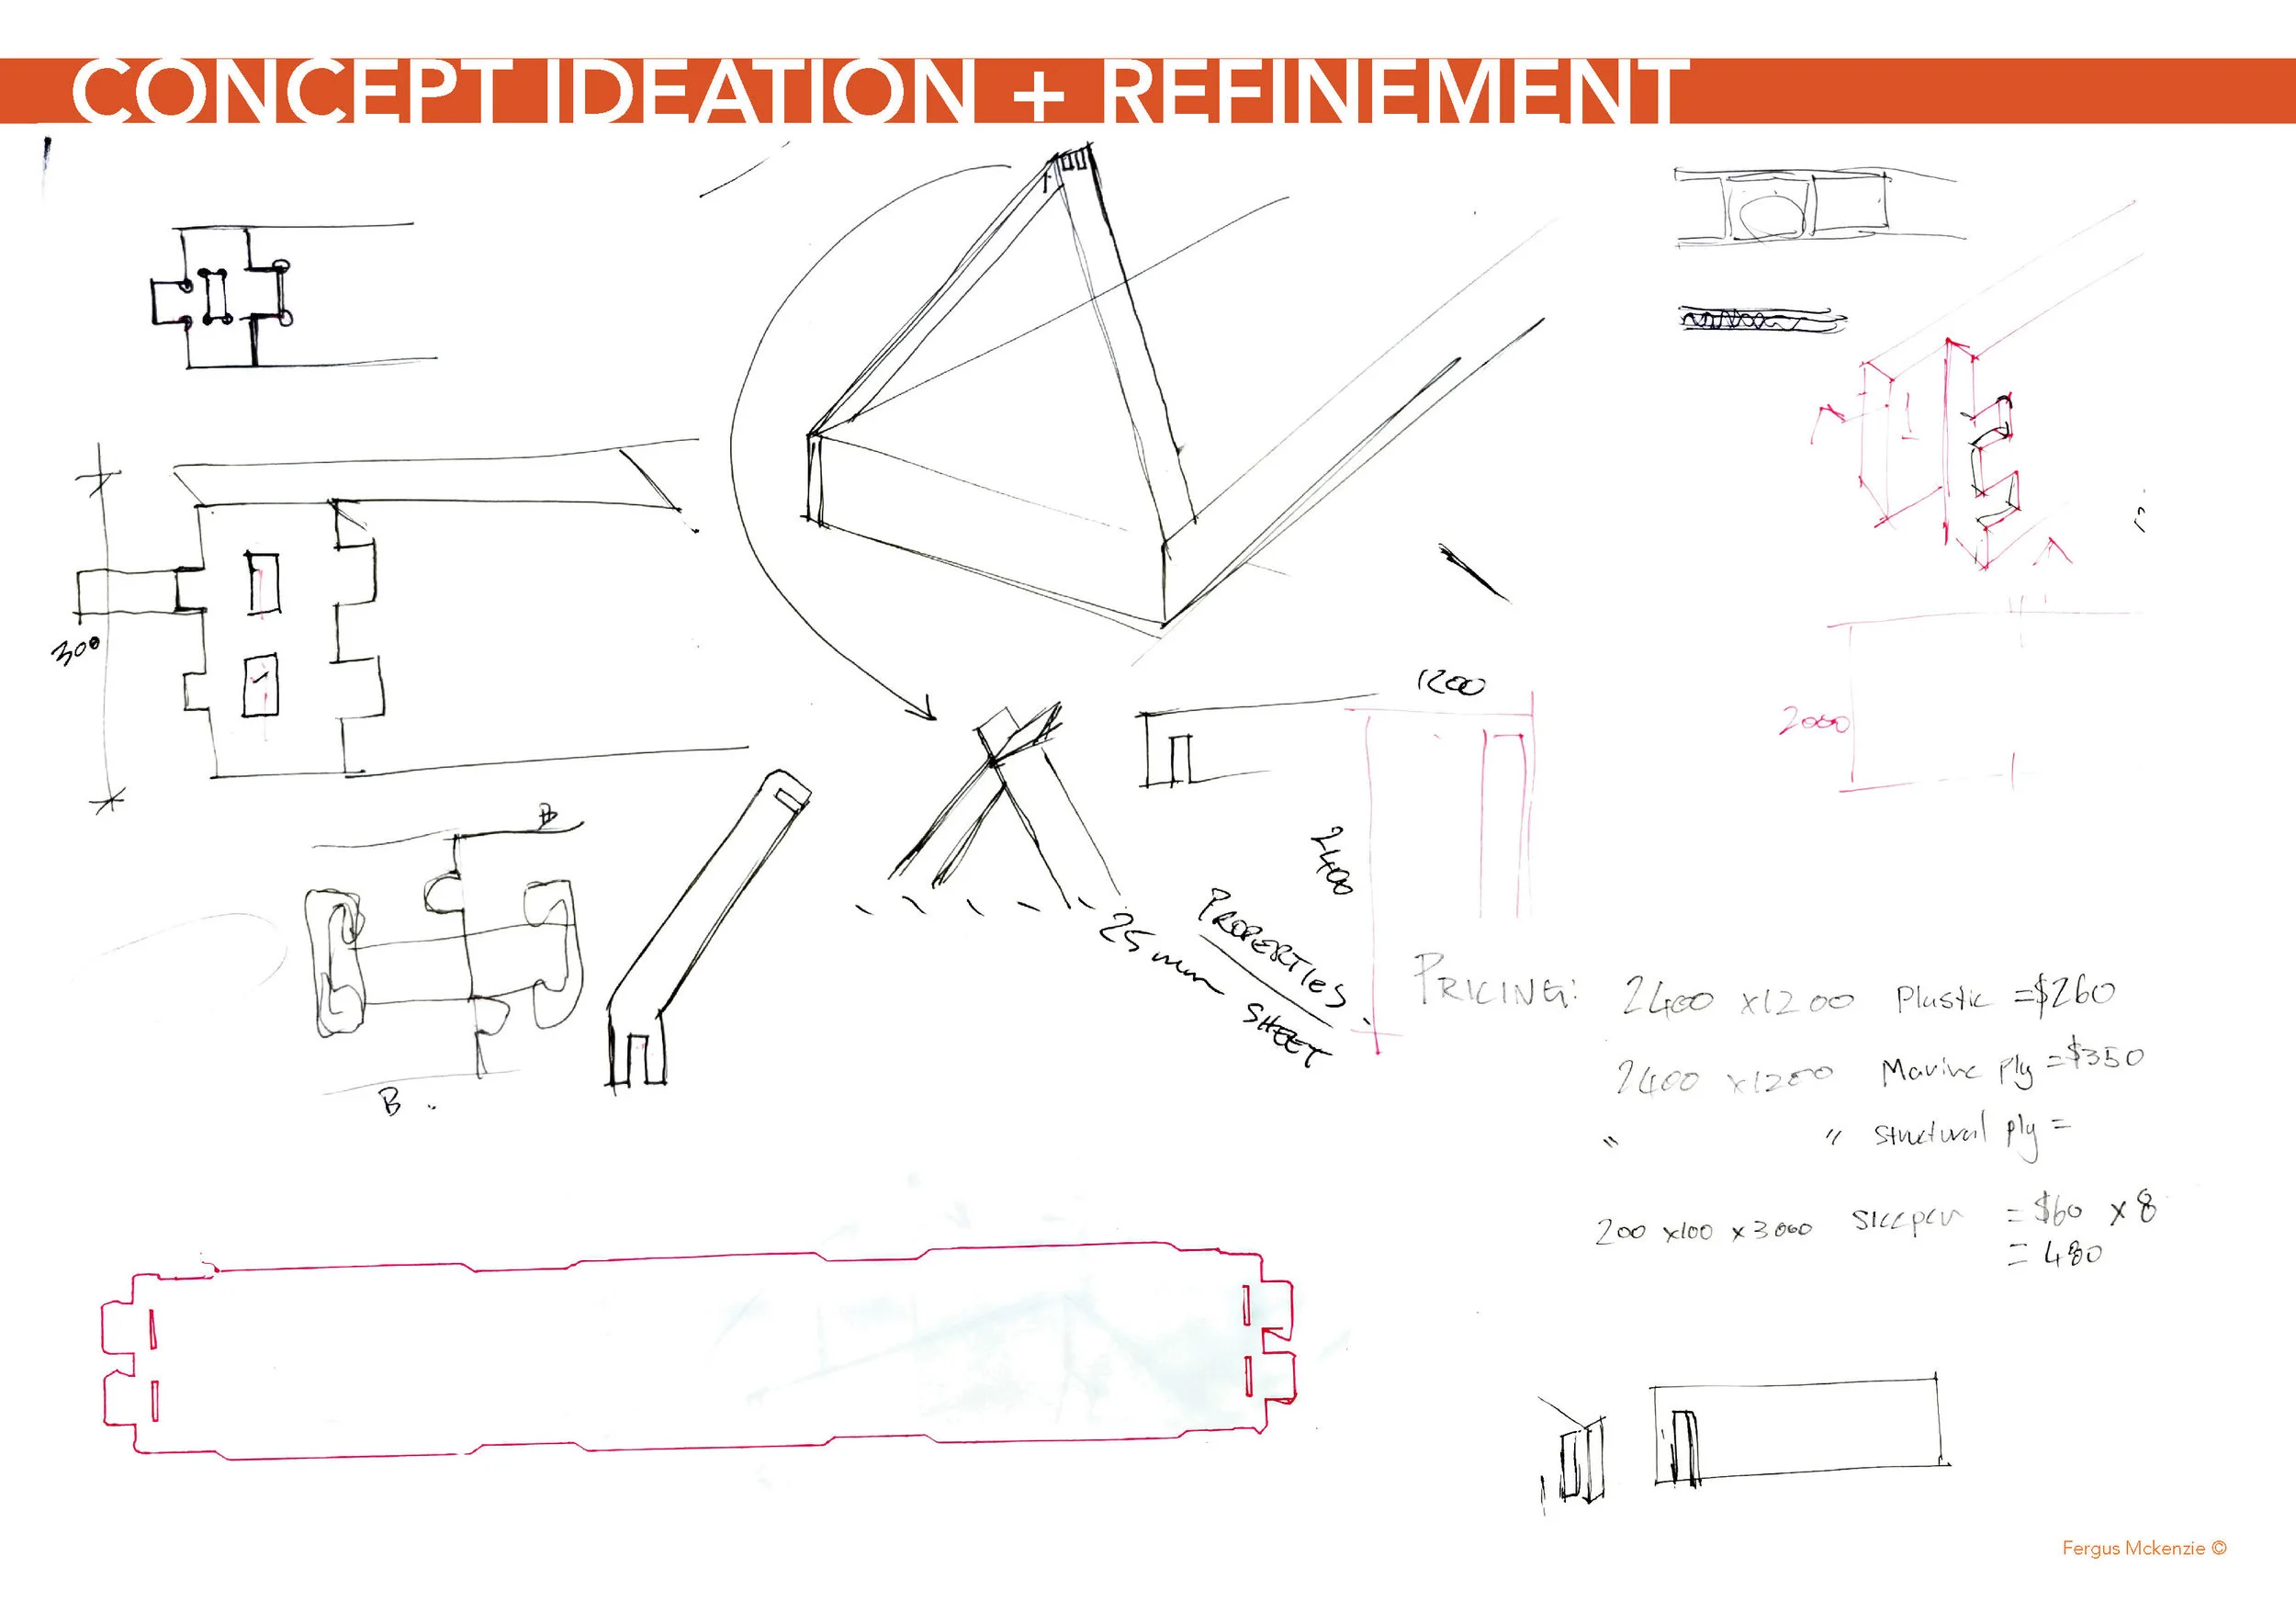 CONCEPT IDEATION + REFINEMENT
300
1200
2000
2400
B
25mm SHEET
PROPERTIES
B .
PRICING: 2400 x1200 Plastic =$260
2400 x1200 Marine ply =$350
" " structural ply =
200 x100 x3000 Sleeper = $60 x 8
= 480
Fergus Mckenzie ©